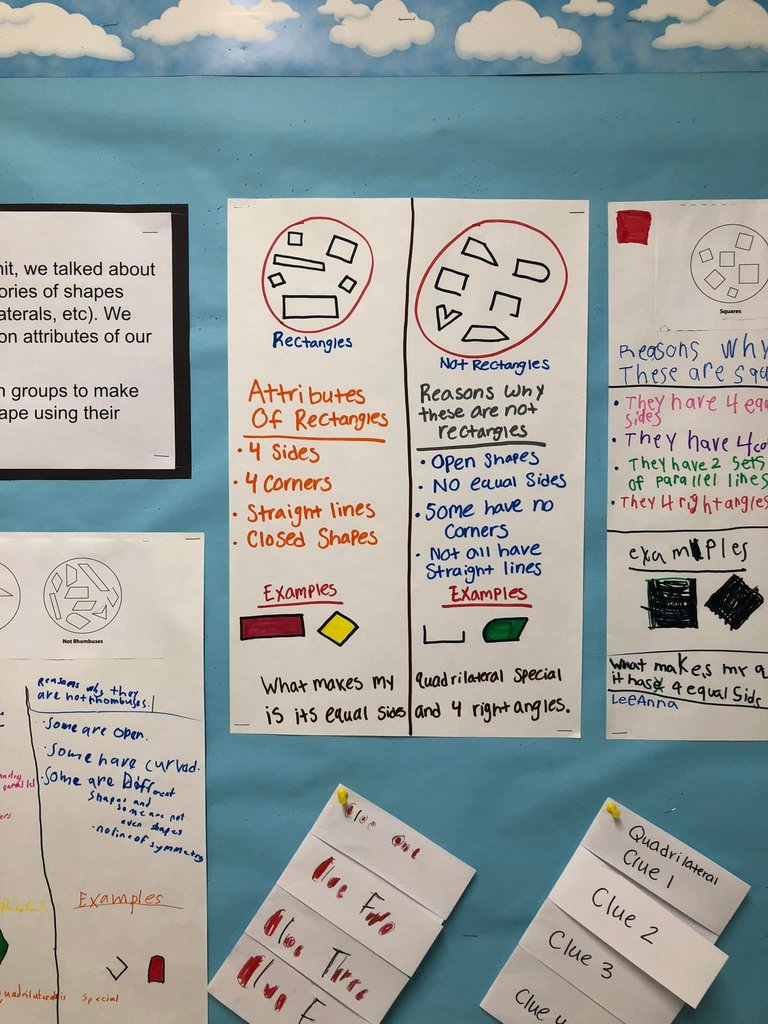 nit, we talked about
ories of shapes
aterals, etc). We
on attributes of our
n groups to make
ape using their
Rectangles
Not Rectangles
Attributes
Of Rectangles
• 4 Sides
• 4 Corners
• Straight lines
• Closed Shapes
Examples
Reasons Why
these are not
rectangles
• Open Shapes
• No equal Sides
• Some have no
Corners
• Not all have
Straight lines
Examples
What makes my quadrilateral special
is its equal sides and 4 right angles.
Squares
Reasons Why
These are squ
• They have 4 equ
sides
• They have 4 co
• They have 2 sets
of parallel lines
• They 4 right angles
examples
What makes my q
it has 4 equal Sid
LeeAnna
Not Rhombuses
Reasons why they
are not rhombuses.
• Some are open.
• Some have curved.
• Some are Different
Shapes and
some are not
even shapes
• no line of symmetry
Examples
quadrilateral is special
Clue One
Clue Two
Clue Three
Clue F
Quadrilateral
Clue 1
Clue 2
Clue 3
Clue 4